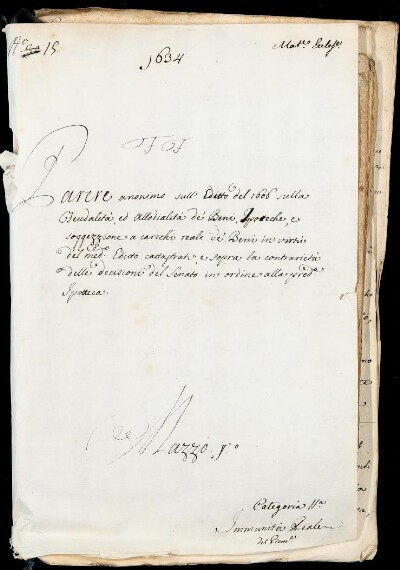 15
Mat.e Eccles.e
1634
Parere anonimo sull' Editto del 1606 sulla
feudalità ed allodialità de' Beni, Ipoteche, e
soggezzione a carichi reali de' Beni in virtù
del med.o Editto catastrati, e sopra la contrarietà
delle decisioni del Senato in ordine alla pred.a
Ipoteca.
Mazzo. 1.o
Categoria 11.a
Immunità Reale
del Piem.te